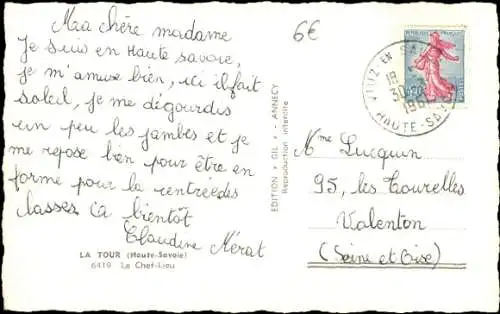 Ma chère madame
Je suis en Haute Savoie,
je m'amuse bien, ici il fait
soleil, je me dégourdis
un peu les jambes et je
me repose bien pour être en
forme pour la rentrée des
classes à bientôt
Claudine Mérat
LA TOUR (Haute-Savoie)
6419 Le Chef-Lieu
EDITION • GIL • - ANNECY
Reproduction interdite
6€
HAUTE-SAVOIE
Mme Lucquin
95, les Tourelles
Valenton
(Seine et Oise)